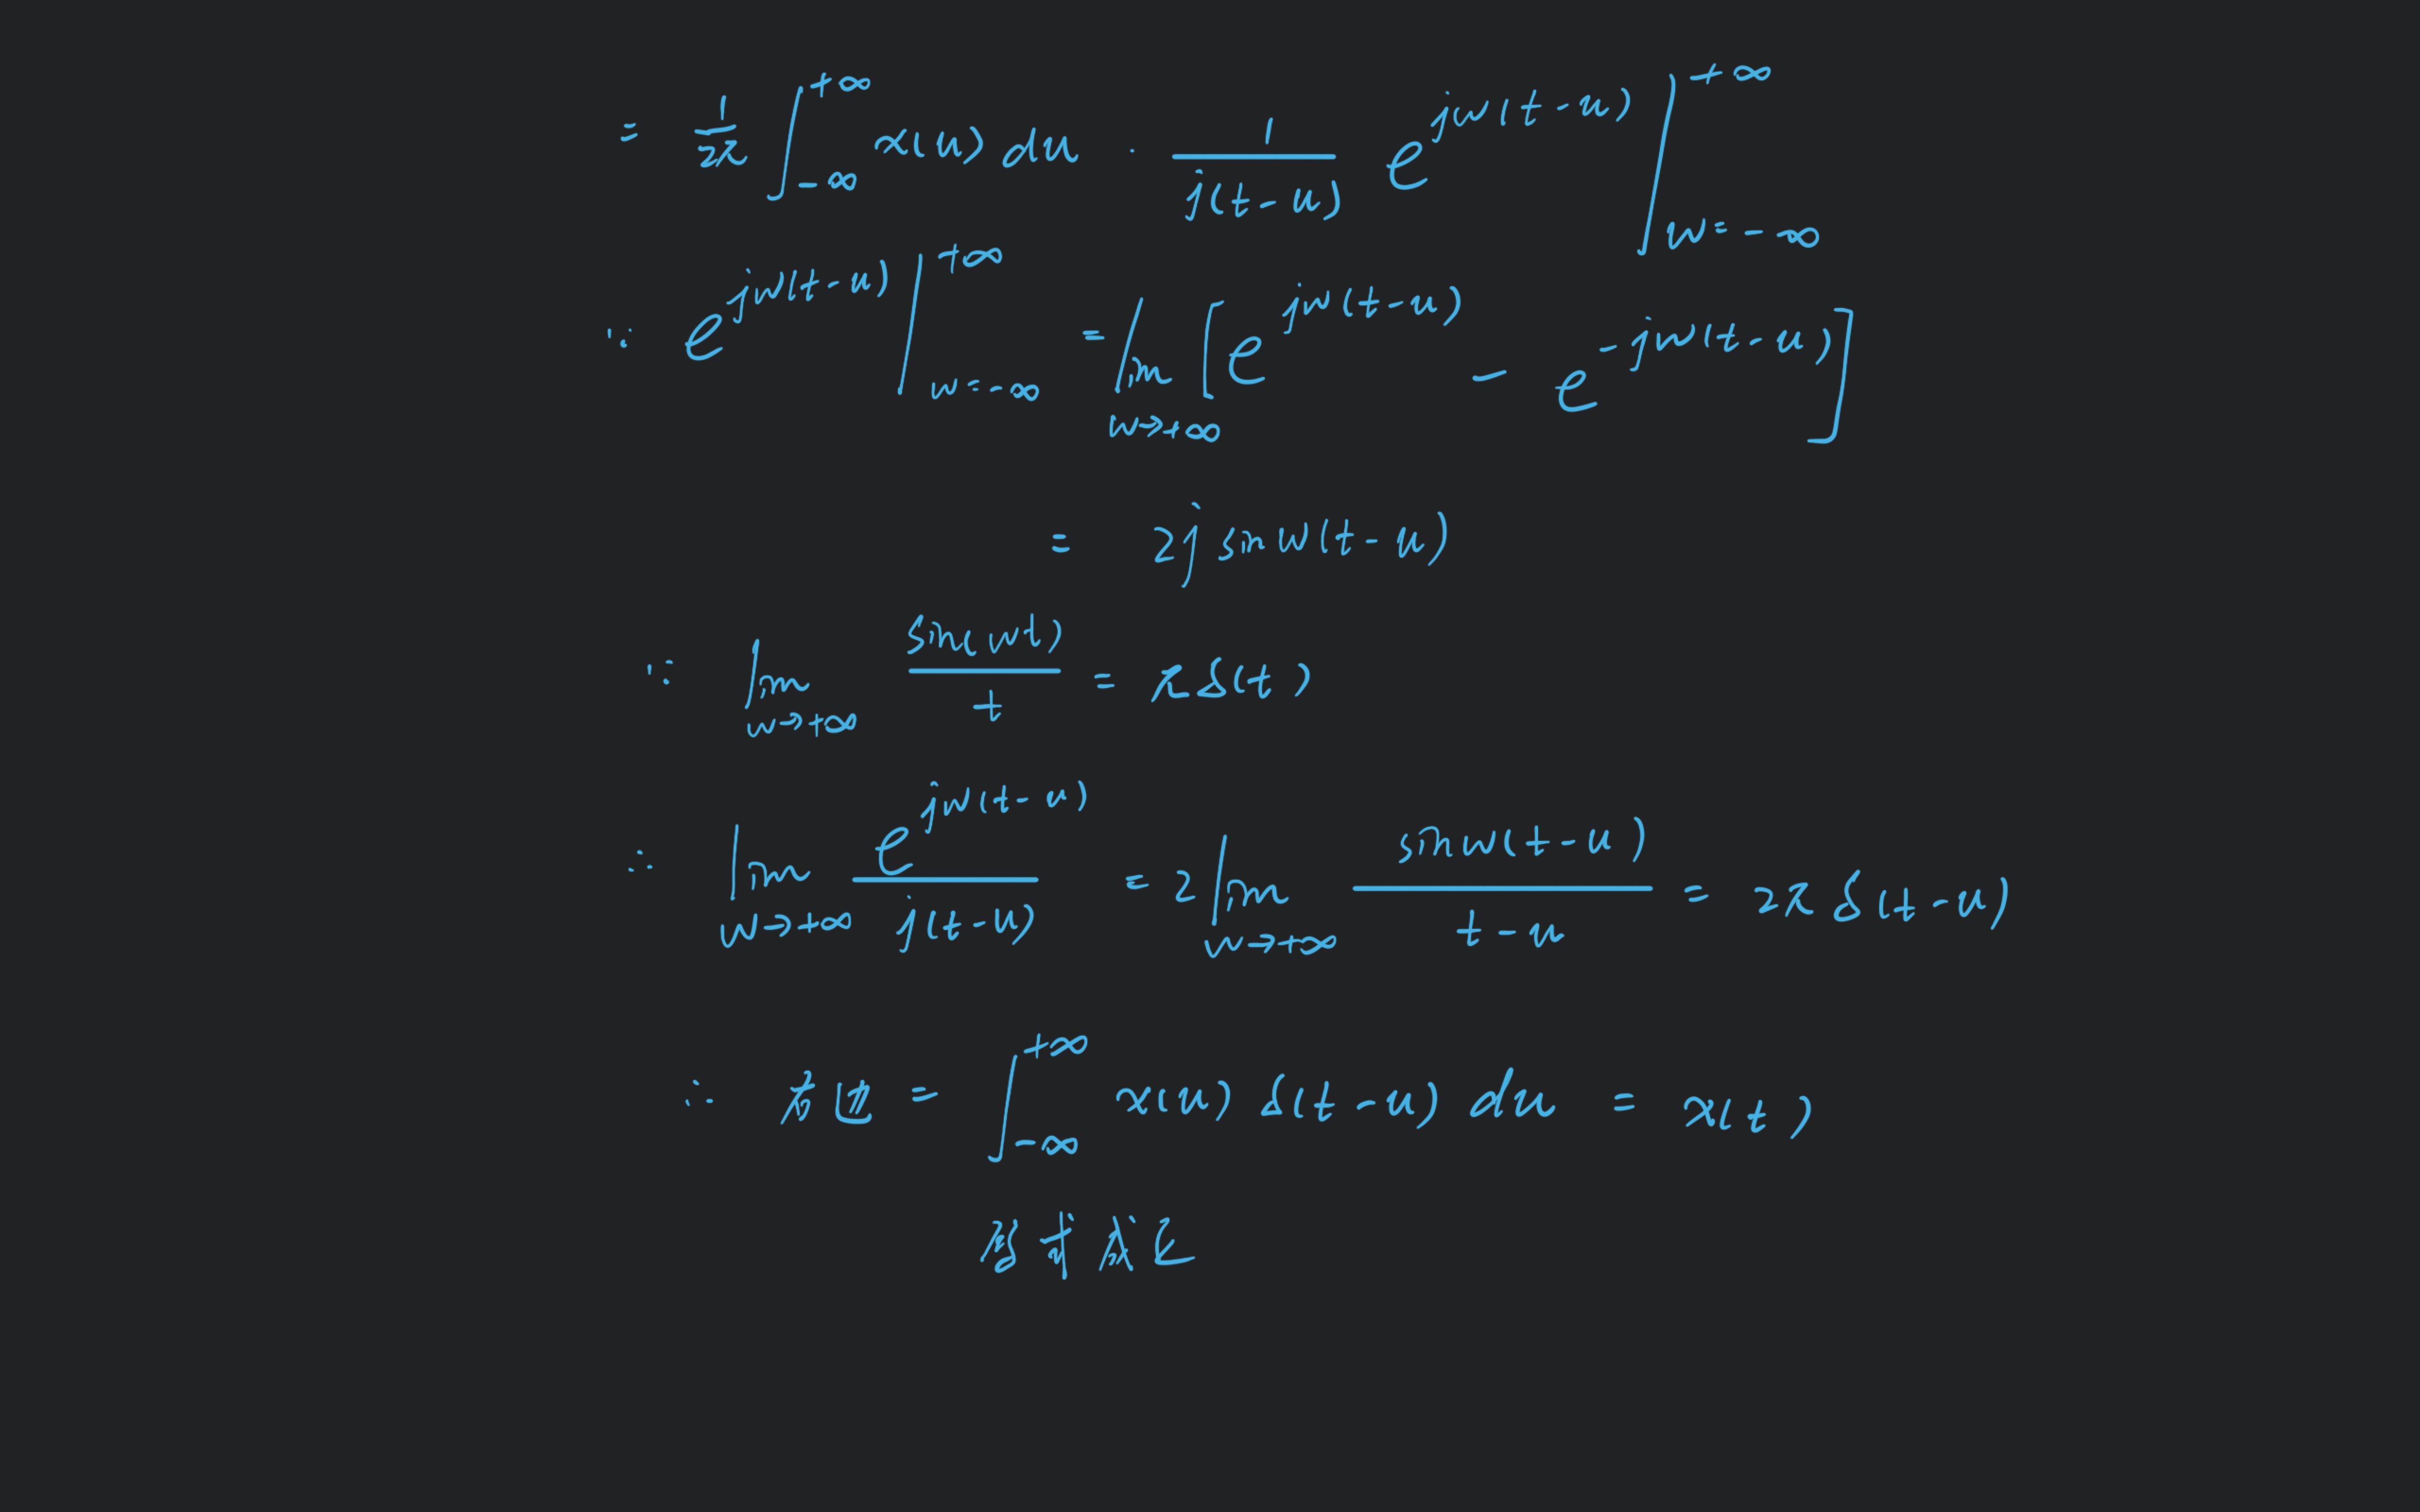 = 1/2π ∫_{-∞}^{+∞} x(u) du · 1/j(t-u) e^{jw(t-u)} |_{w=-∞}^{+∞}
∵ e^{jw(t-u)} |_{w=-∞}^{+∞} = lim_{w→+∞} [e^{jw(t-u)} - e^{-jw(t-u)}]
= 2j sin w(t-u)
∵ lim_{w→+∞} sin(wt)/t = πδ(t)
∴ lim_{w→+∞} e^{jw(t-u)}/j(t-u) = 2 lim_{w→+∞} sin w(t-u)/t-u = 2πδ(t-u)
∴ 右边 = ∫_{-∞}^{+∞} x(u) δ(t-u) du = x(t)
原式成立